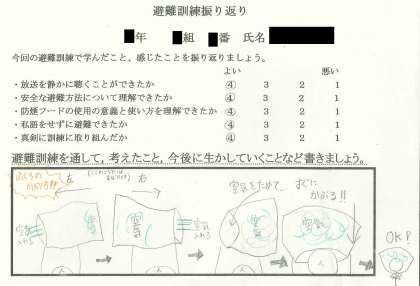 避難訓練振り返り
年 組 番 氏名
今回の避難訓練で学んだこと，感じたことを振り返りましょう。
よい 悪い
・放送を静かに聴くことができたか ④ 3 2 1
・安全な避難方法について理解できたか ④ 3 2 1
・防煙フードの使用の意義と使い方を理解できたか ④ 3 2 1
・私語をせずに避難できたか ④ 3 2 1
・真剣に訓練に取り組んだか ④ 3 2 1
避難訓練を通して，考えたこと，今後に生かしていくことなど書きましょう。
ふくろの
かぶり方
左 右
空気をためて、
すぐに
かぶる!!
空気
入れる
空気
空気
入れる
空気
空気
人
人
人
人
OK!